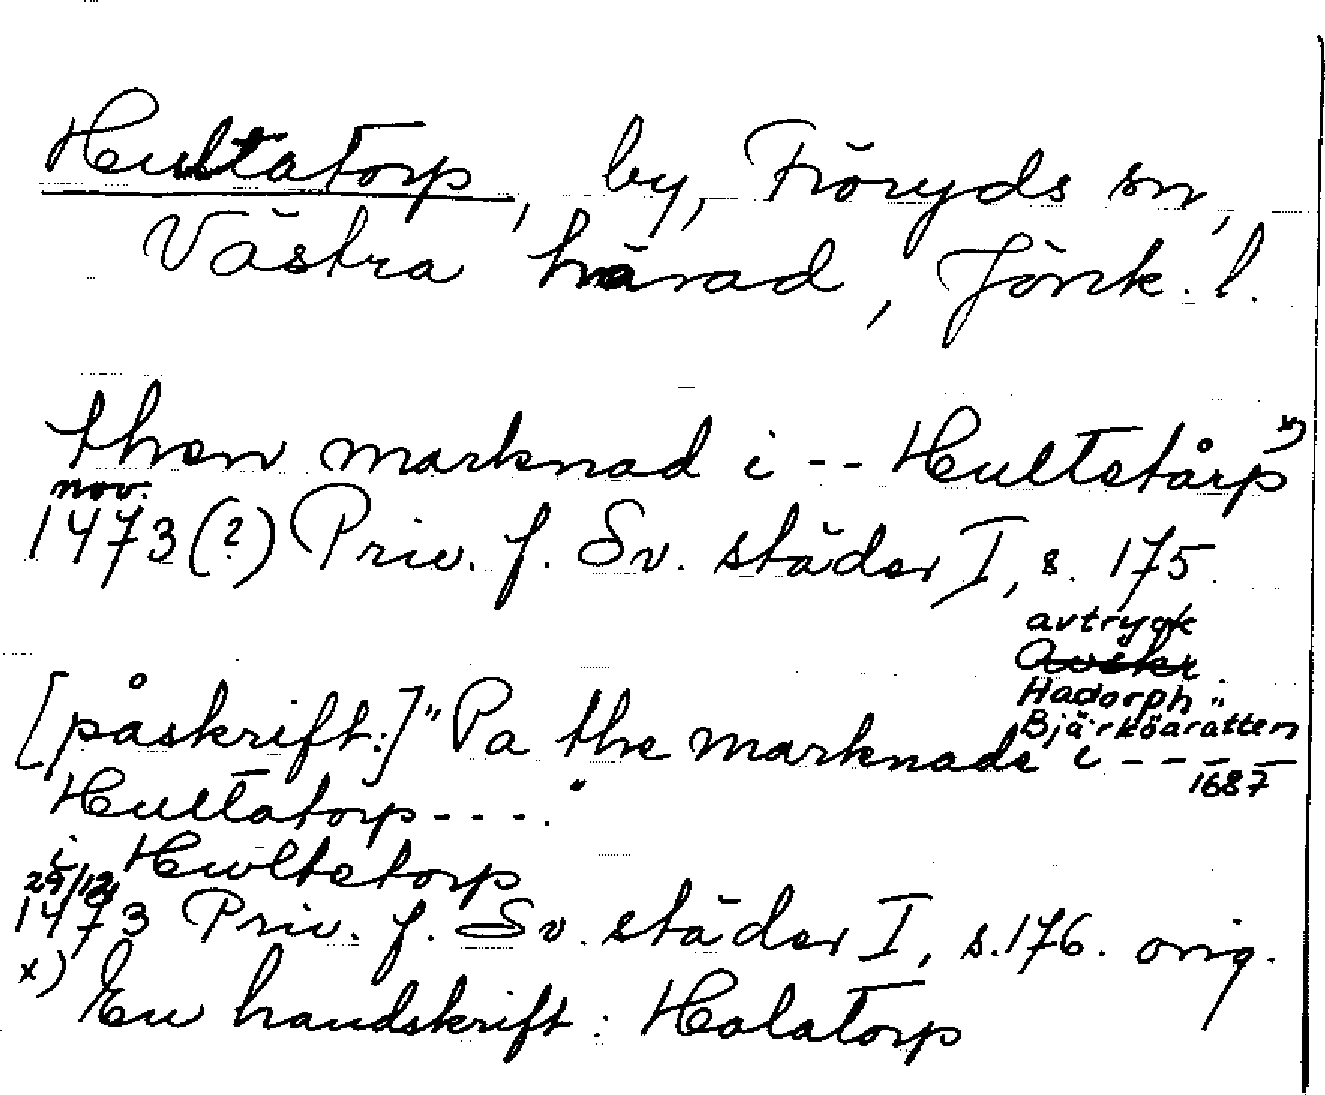 Hultatorp, by, Fröryds sn,
Västra härad, Jönk. l.
then marknad i -- Hultetårp x)
nov.
1473(?) Priv. f. Sv. städer I, s. 175.
avtryck
Avskr
Hadorph :
Bjärköaratten
1687
[påskrift:] "Pa the marknade i -----
Hultatorp ----."
i Hwltetorp
29/12
1473 Priv. f. Sv. städer I, s. 176. orig.
x) En handskrift: Holatorp